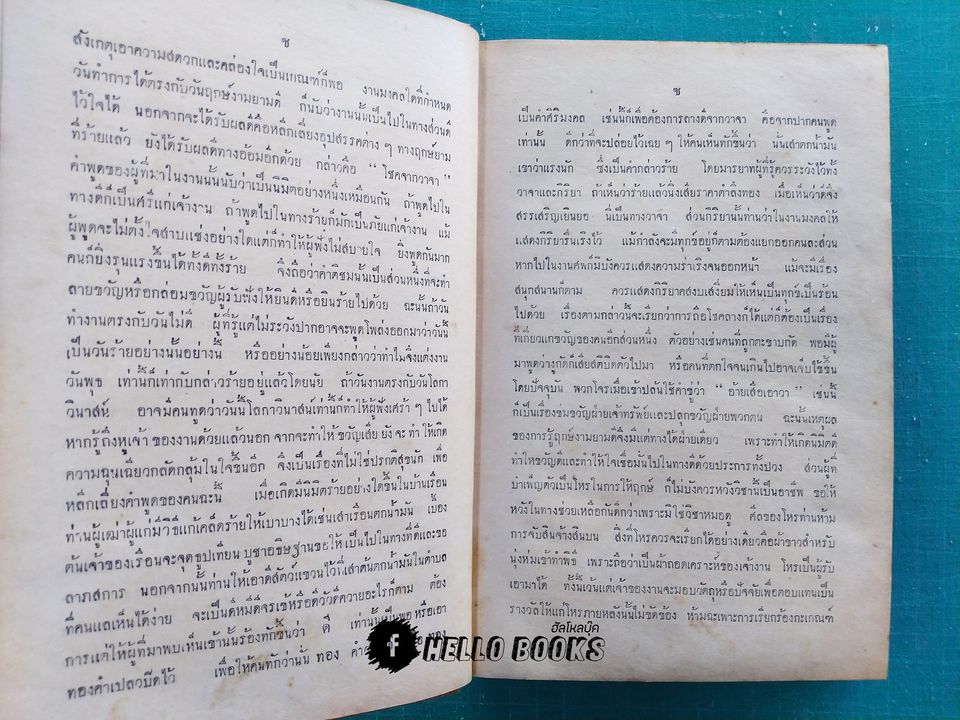 ช
สังเกตุเอาความสดวกและคล่องใจเป็นเกณฑ์ก็พอ งานมงคลใดที่กำหนด
วันทำการได้ตรงกับวันฤกษ์งามยามดี ก็นับว่างานนั้นเป็นไปในทางส่วนดี
ไว้ใจได้ นอกจากจะได้รับผลดีคือหลีกเลี่ยงอุปสรรคต่าง ๆ ทางฤกษ์ยาม
ที่ร้ายแล้ว ยังได้รับผลดีทางอ้อมอีกด้วย กล่าวคือ “โชคจากวาจา”
คำพูดของผู้ที่มาในงานนั้นนับว่าเป็นนิมิตอย่างหนึ่งเหมือนกัน ถ้าพูดไปใน
ทางดีก็เป็นศรีแก่เจ้างาน ถ้าพูดไปในทางร้ายก็มักเป็นภัยแก่เจ้างาน แม้
ผู้พูดจะไม่ตั้งใจสาบแช่งอย่างใดแต่ก็ทำให้ผู้ฟังไม่สบายใจ ยิ่งพูดกันมาก
คนก็ยิ่งรุนแรงขึ้นได้ทั้งดีทั้งร้าย จึงถือว่าคำติชมนั้นเป็นส่วนหนึ่งที่จะทำ
ลายขวัญหรือกล่อมขวัญผู้รับฟังให้ยินดีหรือยินร้ายไปด้วย ฉะนั้นถ้าวัน
ทำงานตรงกับวันไม่ดี ผู้ที่รู้แต่ไม่ระวังปากอาจจะพูดโพล่งออกมาว่าวันนี้
เป็นวันร้ายอย่างนั้นอย่างนี้ หรืออย่างน้อยเพียงกล่าวว่าทำไมจึงแต่งงาน
วันพุธ เท่านี้ก็เท่ากับกล่าวร้ายอยู่แล้วโดยนัย ถ้าวันงานตรงกับวันโลกา
วินาสน์ อาจมีคนทูดว่าวันนี้โลกาวินาสน์เท่านี้ก็ทำให้ผู้ฟังเศร้า ๆ ไปได้
หากรู้ถึงหูเจ้า ของงานด้วยแล้วนอก จากจะทำให้ ขวัญเสีย ยัง จะ ทำ ให้เกิด
ความฉุนเฉียวกลัดกลุ้มในใจขึ้นอีก จึงเป็นเรื่องที่ไม่ใช่ปรกติสุขนัก เพื่อ
หลีกเลี่ยงคำพูดของคนฉะนี้ เมื่อเกิดมีนิมิตร้ายอย่างใดขึ้นในบ้านเรือน
ท่านผู้เฒ่าผู้แก่มีวิธีแก้เคล็ดร้ายให้เบาบางได้เช่นเสาเรือนตกน้ำมัน เบื้อง
ต้นเจ้าของเรือนจะจุดธูปเทียน บูชาอธิษฐานขอให้ เป็นไปในทางที่ดีและขอ
ลาภสการ นอกจากนั้นท่านให้เอาดีสัตว์แขวนไว้ที่เสาต้นตกน้ำมันในตำบล
ที่คนแลเห็นได้ง่าย จะเป็นดีหมีดีจรเข้หรือดีวัวดีควายอะไรก็ตาม ต้อง
การแต่ให้ผู้ที่มาพบเห็นเข้านั้นร้องทักขึ้นว่า ดี เท่านั้นเป็นพอ หรือเอา
ทองคำเปลวปิดไว้ เพื่อให้คนทักว่านั่น ทอง
ซ
เป็นคำศิริมงคล เช่นนี้ก็เพื่อต้องการถางดีจากวาจา คือจากปากคนพูด
เท่านั้น ดีกว่าที่จะปล่อยไว้เฉย ๆ ให้คนเห็นทักขึ้นว่า นั่นเสาตกน้ำมัน
เขาว่าแรงนัก ซึ่งเป็นคำกล่าวร้าย โดยมารยาทผู้ที่รู้ควรระวังไว้ทั้ง
วาจาและกิริยา ถ้าเห็นว่าร้ายแล้วนิ่งเสียราคาตำลึงทอง เมื่อเห็นว่าดีจึง
สรรเสริญเยินยอ นี่เป็นทางวาจา ส่วนกิริยานั้นท่านว่าในงานมงคลให้
แสดงกิริยารื่นเริงไว้ แม้กำลังจะมีทุกข์อยู่ก็ตามต้องแยกออกคนละส่วน
หากไปในงานศพก็มิบังควรแสดงความร่าเริงจนออกหน้า แม้จะมีเรื่อง
สนุกสนานก็ตาม ควรแสดงกิริยาสงบเสงี่ยมให้เห็นเป็นทุกข์เป็นร้อน
ไปด้วย เรื่องตามกล่าวนี้จะเรียกว่าการถือโชคลางก็ได้แต่ก็ต้องเป็นเรื่อง
ที่เกี่ยวแก่ขวัญของคนอีกส่วนหนึ่ง ตัวอย่างเช่นคนที่ถูกตะขาบกัด พอมีผู้
มาพูดว่างูกัดก็เสียสติบิดตัวไปมา หรือคนที่ตกใจจนเกินไปอาจเจ็บไข้ขึ้น
โดยปัจจุบัน พวกโจรเมื่อเข้าปล้นใช้คำขู่ว่า “อ้ายเสือเอาวา” เช่นนี้
ก็เป็นเรื่องข่มขวัญฝ่ายเจ้าทรัพย์และปลุกขวัญฝ่ายพวกตน ฉะนั้นเหตุผล
ของการรู้ฤกษ์งามยามดีจึงมีแต่ทางได้ฝ่ายเดียว เพราะทำให้เกิดนิมิตดี
ทำให้ขวัญดีและทำให้ใจเชื่อมั่นไปในทางดีด้วยประการทั้งปวง ส่วนผู้ที่
บำเพ็ญตัวเป็นโหรในการให้ฤกษ์ ก็ไม่บังควรหวังวิชานี้เป็นอาชีพ ขอให้
หวังในทางช่วยเหลือกันดีกว่าเพราะมิใช่วิชาหมอดู ศีลของโหรท่านห้าม
การจับสินจ้างสินบน สิ่งที่โหรควรจะเรียกได้อย่างเดียวคือผ้าขาวสำหรับ
นุ่งห่มเข้าทำพิธี เพราะถือว่าเป็นผ้าถอดเคราะห์ของเจ้างาน โหรเป็นผู้รับ
เอามาได้ ทั้งนี้เว้นแต่เจ้าของงานจะมอบวัตถุหรือปัจจัยเพื่อตอบแทนเป็น
รางวัลให้แก่โหรภายหลังนั้นไม่ขัดข้อง ห้ามฉะเพาะการเรียกร้องกะเกณฑ์
ฮัลโหลบุ๊ค
f HELLO BOOKS